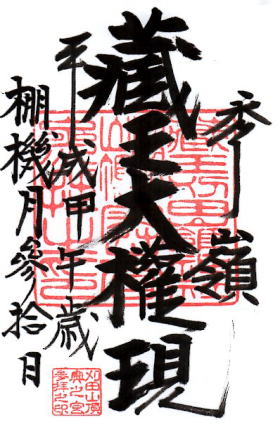 参嶺
藏王大權現
平成甲午歳
棚機月參拾日
刈田山頂
奥之宮
参拝之印